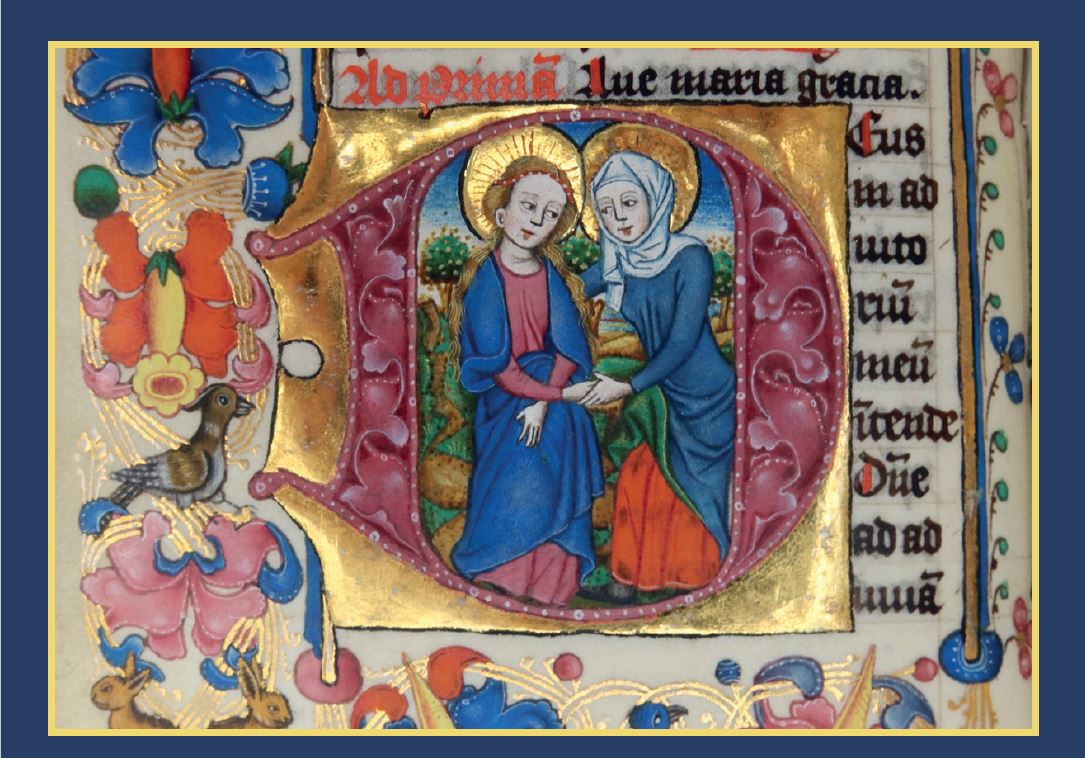 Ad primā Aue maria gracia.
DEus
in ad
iuto
riū
meū
ītende
Dn̄e
ad ad
iuuā